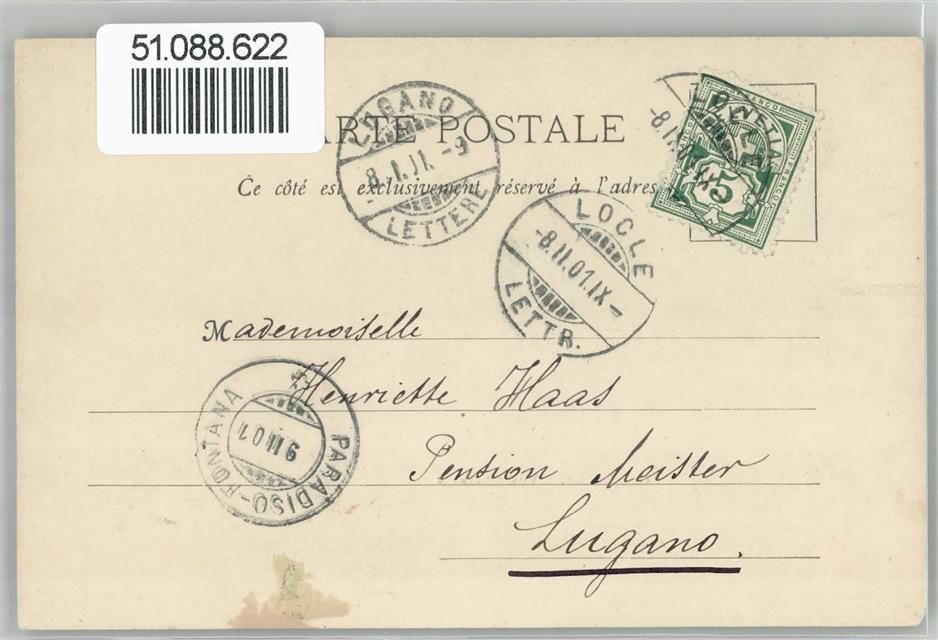 51.088.622
CARTE POSTALE
Ce côté est exclusivement réservé à l'adresse
LUGANO
LETTERE
HELVETIA
FRANCO
FRANCO
5
LOCLE
-8.II.01.IX-
LETTR.
Mademoiselle
Henriette Haas
Pension Meister
Lugano.
PARADISO-FONTANA
9 II 01